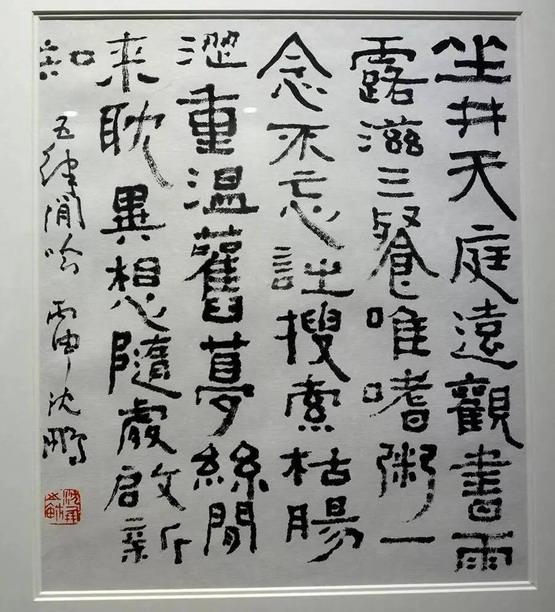 坐井天庭遠觀書雨
露滋三餐唯嗜粥一
念不忘詩搜索枯腸
澀重溫舊夢絲閒
来耽異想隨處啟新
知 五律閒吟 丙申沈鵬